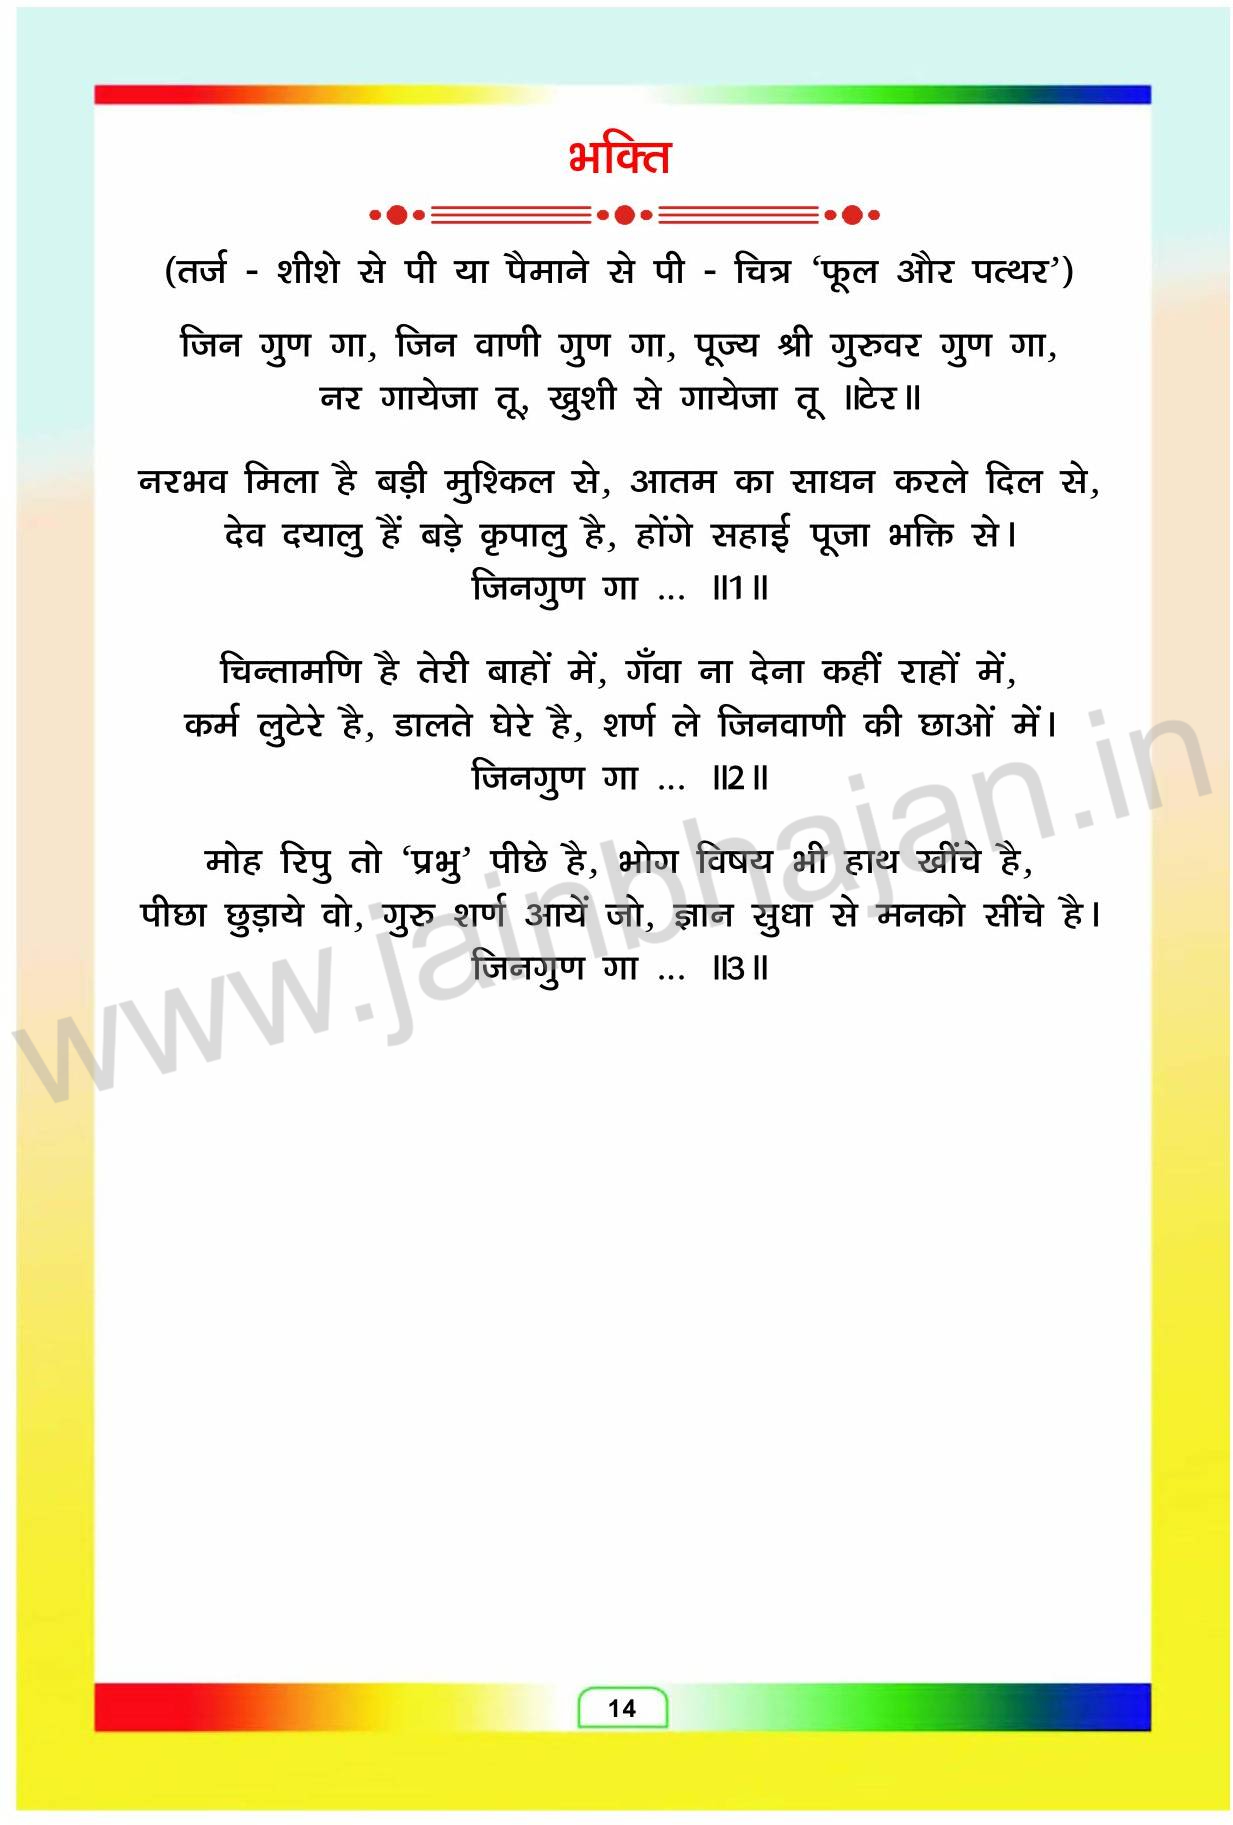 भक्ति
(तर्ज - शीशे से पी या पैमाने से पी - चित्र ‘फूल और पत्थर’)
जिन गुण गा, जिन वाणी गुण गा, पूज्य श्री गुरुवर गुण गा,
नर गायेजा तू, खुशी से गायेजा तू ॥टेर॥
नरभव मिला है बड़ी मुश्किल से, आतम का साधन करले दिल से,
देव दयालु हैं बड़े कृपालु है, होंगे सहाई पूजा भक्ति से।
जिनगुण गा ... ॥1॥
चिन्तामणि है तेरी बाहों में, गँवा ना देना कहीं राहों में,
कर्म लुटेरे है, डालते घेरे है, शर्ण ले जिनवाणी की छाओं में।
जिनगुण गा ... ॥2॥
मोह रिपु तो ‘प्रभु’ पीछे है, भोग विषय भी हाथ खींचे है,
पीछा छुड़ाये वो, गुरु शर्ण आयें जो, ज्ञान सुधा से मनको सींचे है।
जिनगुण गा ... ॥3॥
www.jainbhajan.in
14